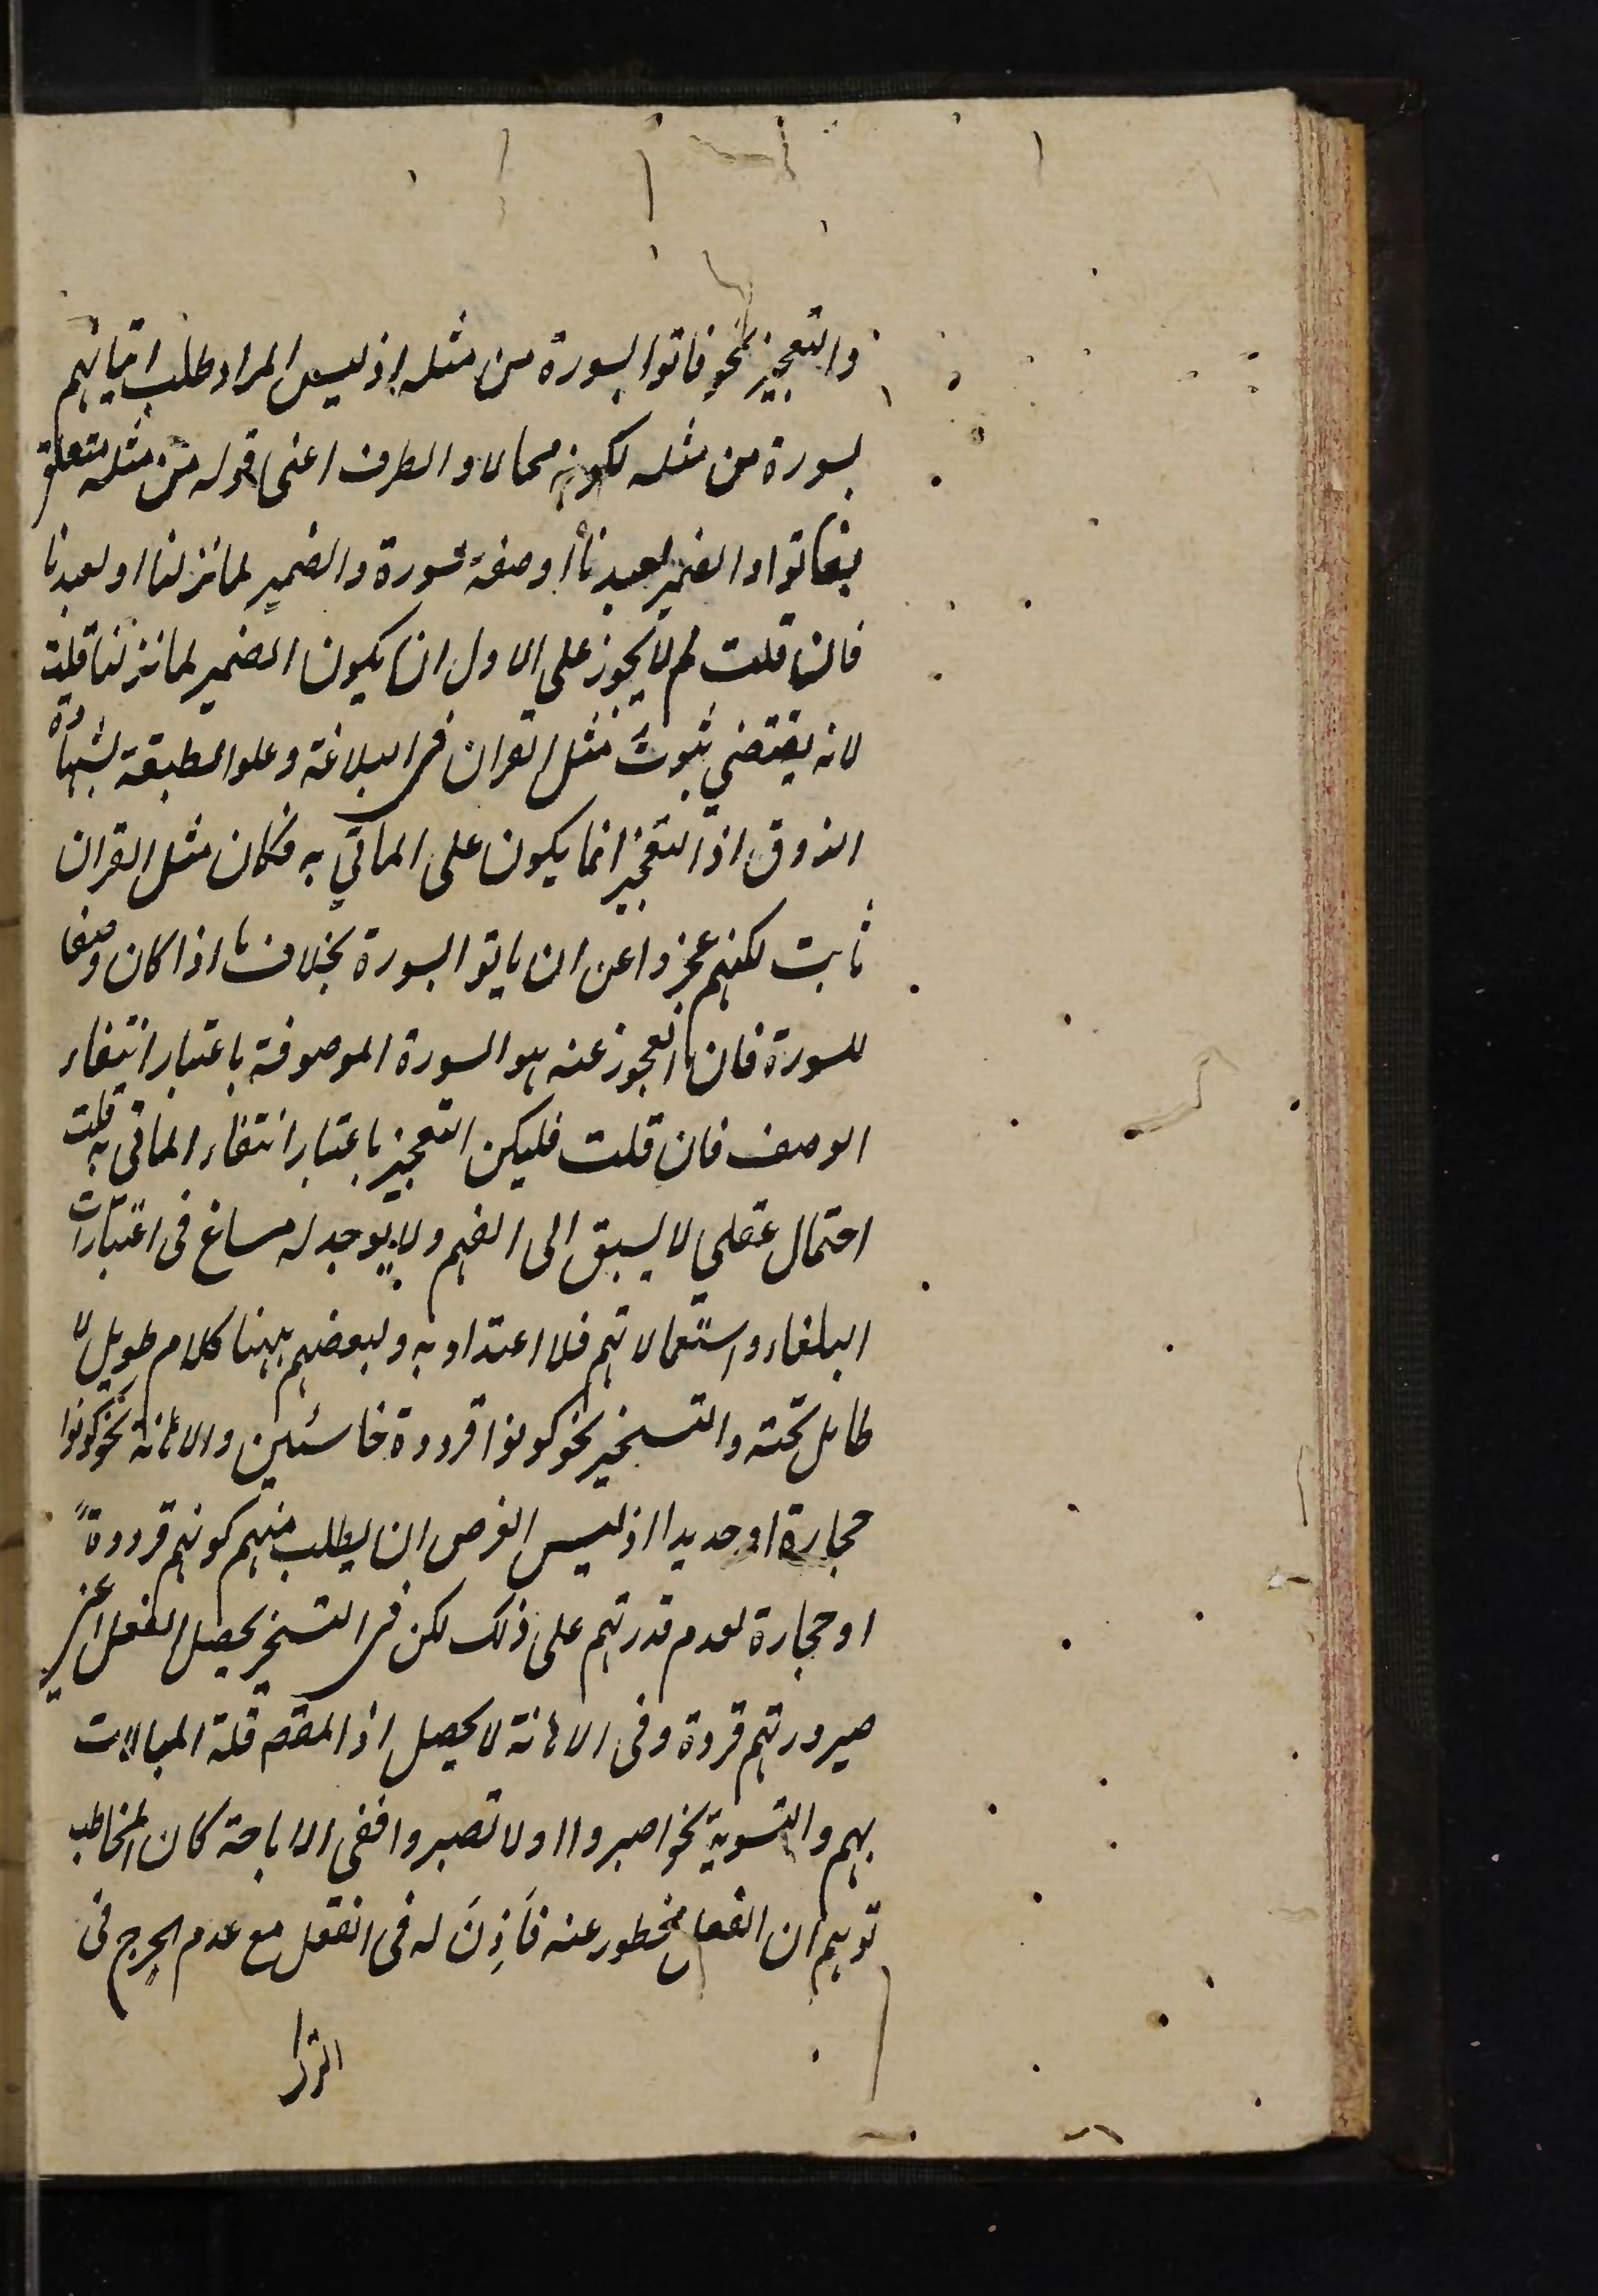 والتعجيز نحو فاتوا بسورة من مثله اذ ليس المراد طلب اتيانهم
بسورة من مثله لكونه محالا والظرف اعنى قوله من مثله متعلق
بفاتوا والضمير لعبدنا او صفة لسورة والضمير لما نزلنا او لعبدنا
فان قلت لم لا يجوز على الاول ان يكون الضمير لما نزلنا قلت
لانه يقتضي ثبوت مثل القران فى البلاغة وعلو الطبقة بشهادة
الذوق اذ التعجيز انما يكون على الماتي به فكان مثل القران
ثابت لكنهم عجزوا عن ان ياتوا بسورة بخلاف ما اذا كان وصفا
للسورة فان المعجوز عنه هو السورة الموصوفة باعتبار انتفاء
الوصف فان قلت فليكن التعجيز باعتبار انتفاء الماتى به قلت
احتمال عقلي لا يسبق الى الفهم ولا يوجد له مساغ فى اعتبارات
البلغاء واستعمالاتهم فلا اعتداد به ولبعضهم ههنا كلام طويل لا
طايل تحته والتسخير نحو كونوا قردة خاسئين والاهانة نحو كونوا
حجارة او حديدا اذ ليس الغرض ان يطلب منهم كونهم قردة
او حجارة لعدم قدرتهم على ذلك لكن فى التسخير يحصل الفعل اعنى
صيرورتهم قردة وفى الاهانة لا يحصل اذ المقصد قلة المبالات
بهم والتسوية نحو اصبروا او لا تصبروا ففى الاباحة كان المخاطب
توهم ان الفعل محظور عنه فَاَذِنَ له فى الفعل مع عدم الحرج فى
الترك